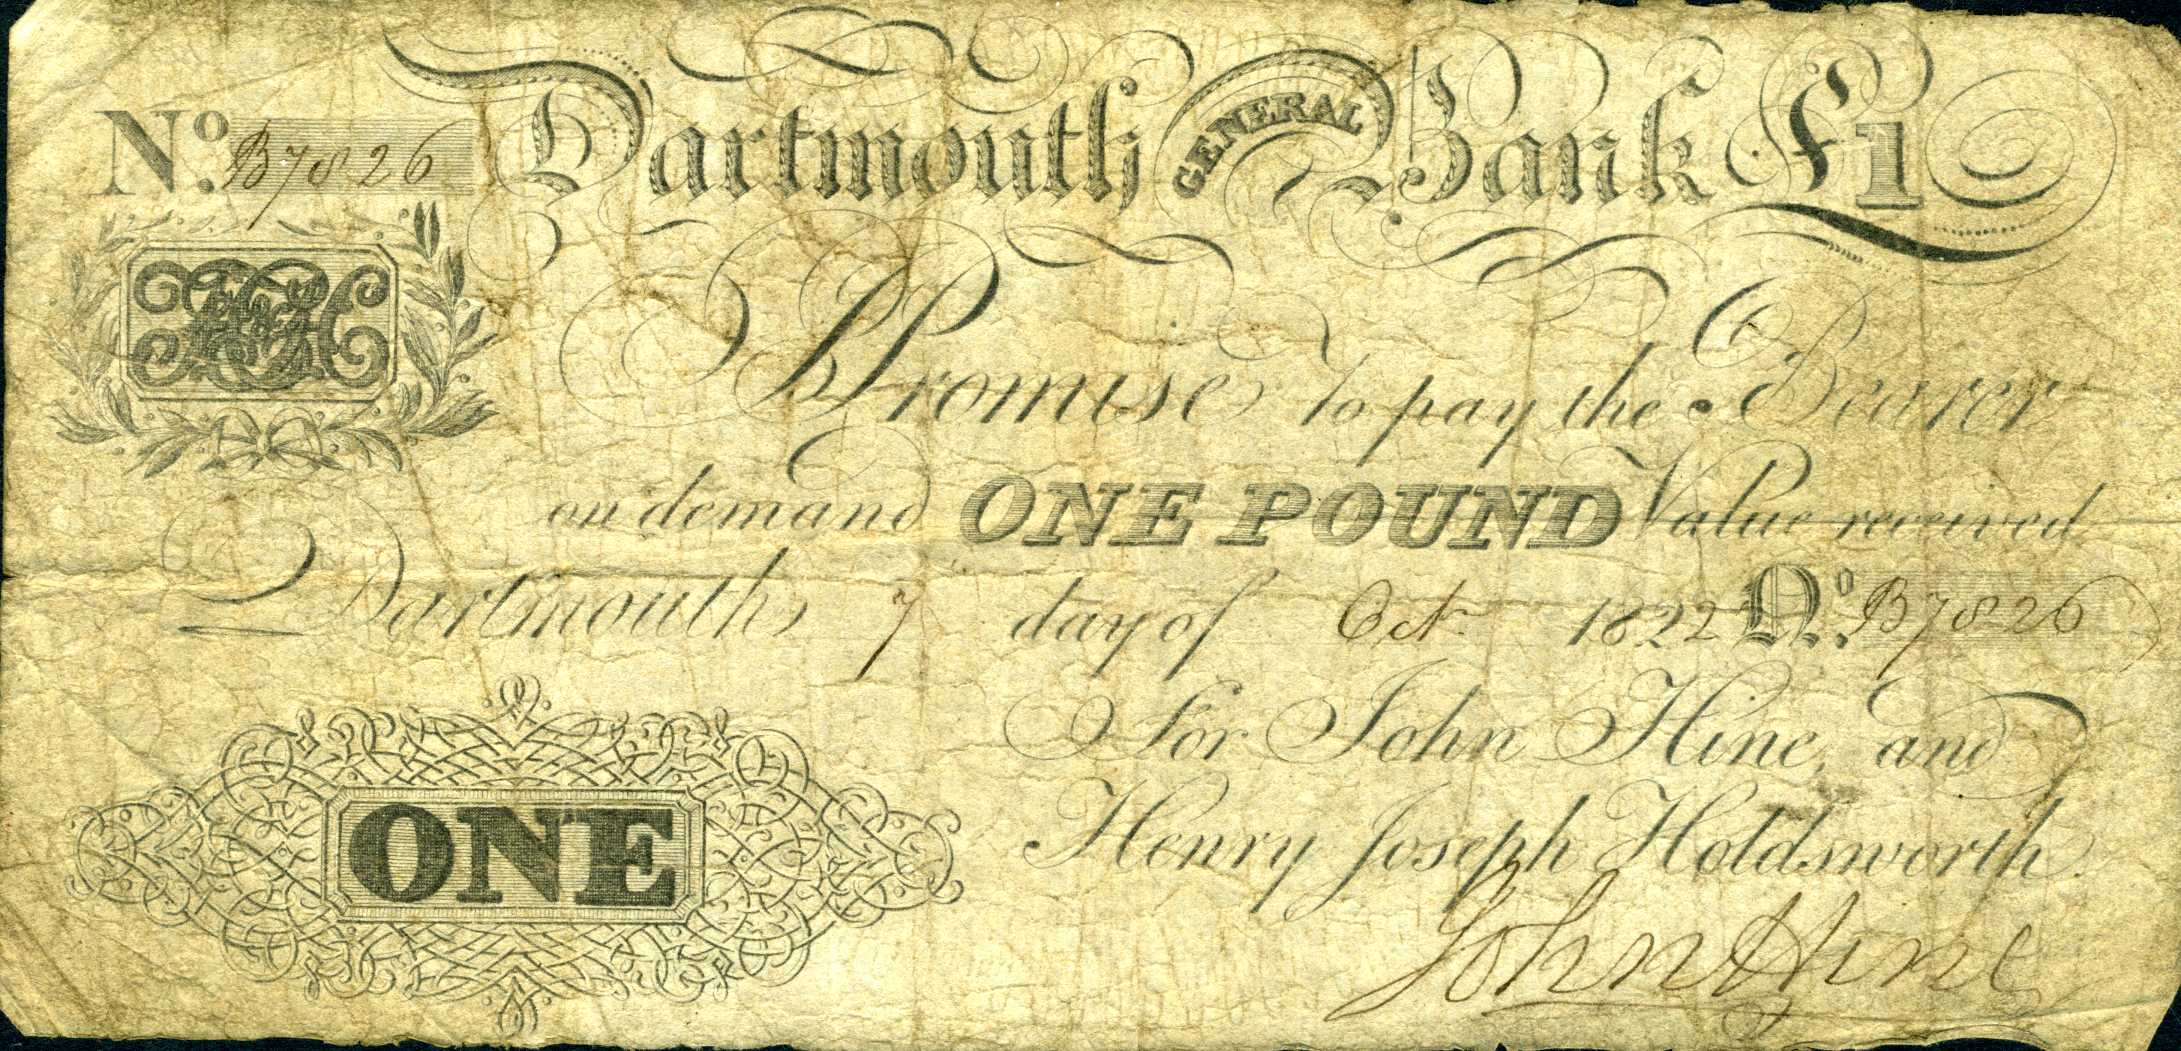 No. B7826 Dartmouth GENERAL Bank £1
I Promise to pay the Bearer
on demand ONE POUND Value received
Dartmouth, 7 day of Oct 1822 No. B7826
For John Hine, and
Henry Joseph Holdsworth.
ONE
John Hine